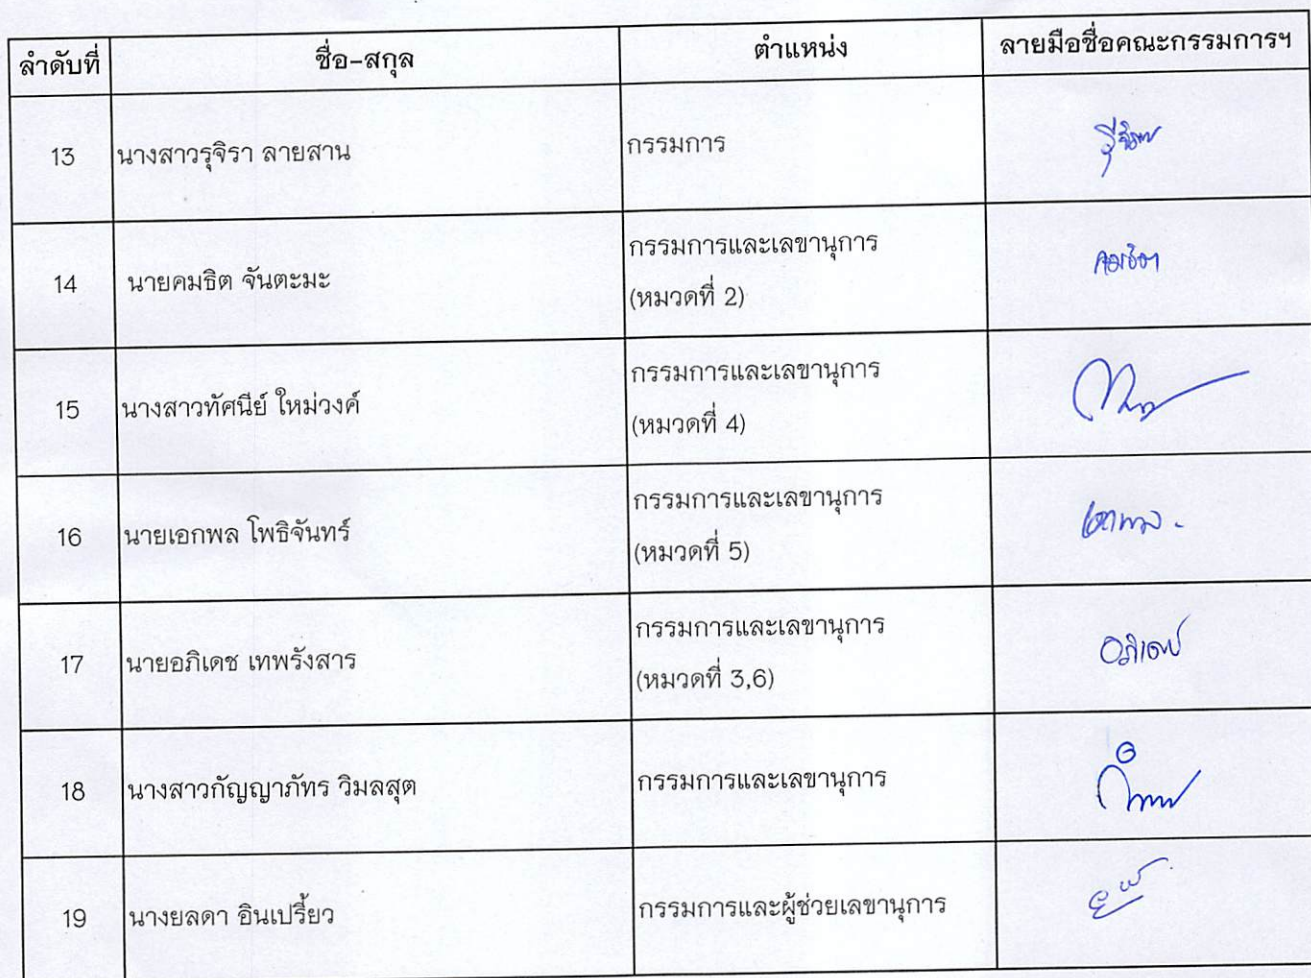 ลำดับที่ ชื่อ-สกุล ตำแหน่ง ลายมือชื่อคณะกรรมการฯ
13 นางสาวรุจิรา ลายสาน กรรมการ
14 นายคมธิต จันตะมะ กรรมการและเลขานุการ คมธิต
(หมวดที่ 2)
15 นางสาวทัศนีย์ ใหม่วงค์ กรรมการและเลขานุการ
(หมวดที่ 4)
16 นายเอกพล โพธิจันทร์ กรรมการและเลขานุการ เอกพล
(หมวดที่ 5)
17 นายอภิเดช เทพรังสาร กรรมการและเลขานุการ อภิเดช
(หมวดที่ 3,6)
18 นางสาวกัญญาภัทร วิมลสุต กรรมการและเลขานุการ
19 นางยลดา อินเปรี้ยว กรรมการและผู้ช่วยเลขานุการ